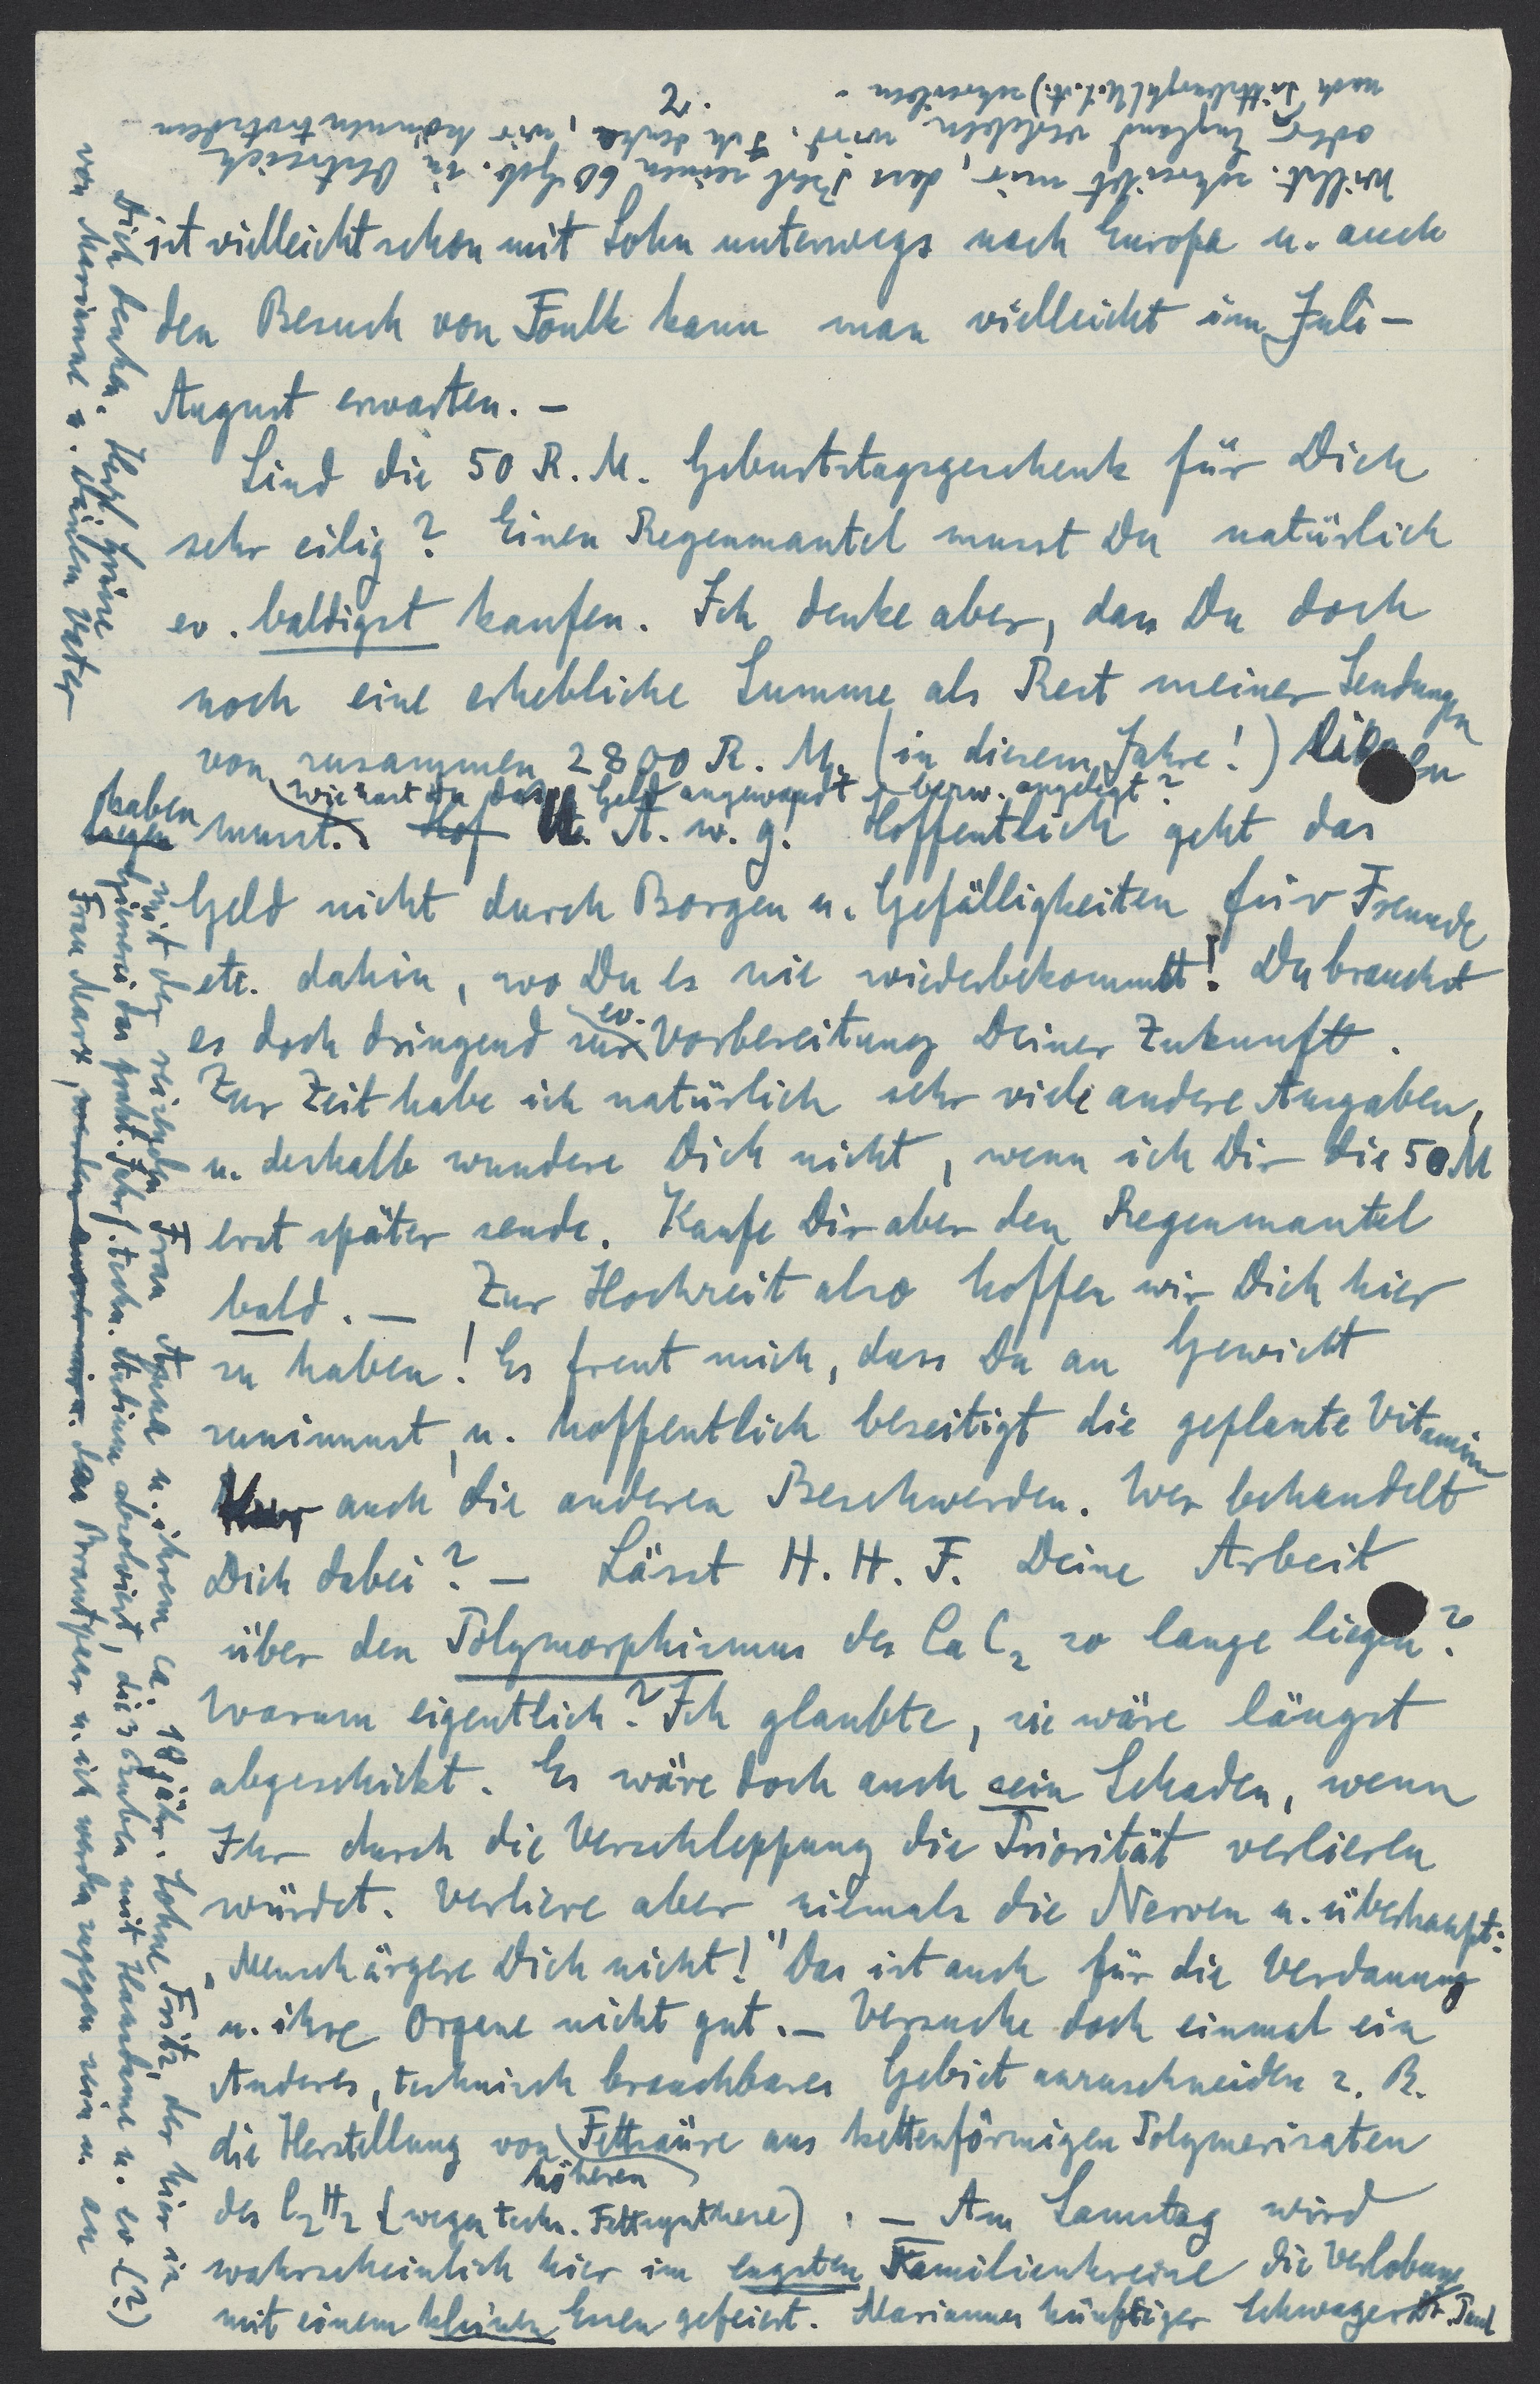 2.
ist vielleicht schon mit Sohn unterwegs nach Europa u. auch
den Besuch von Foulk kann man vielleicht im Juli –
August erwarten. –
Sind die 50 R. M. Geburtstagsgeschenk für Dich
sehr eilig? Einen Regenmantel musst Du natürlich
ev. baldigst kaufen. Ich denke aber, dass Du doch
noch eine erhebliche Summe als Rest meiner Sendungen
von zusammen 2800 R. M. (in diesem Jahre!)
wie hast du das Geld angewandt bezw. angelegt?
haben
liegen musst. Hof U. A. w. g! Hoffentlich geht das
Geld nicht durch Borgen u. Gefälligkeiten für Freunde
etc. dahin, wo Du es nie wiederbekommst! Du brauchst
ev.
es doch dringend zur Vorbereitung Deiner Zukunft.
Zur Zeit habe ich natürlich sehr viele andere Ausgaben,
u. deshalb wundere Dich nicht, wenn ich Dir die 50 M
erst später sende. Kaufe Dir aber den Regenmantel
bald. – Zur Hochzeit also hoffen wir Dich hier
zu haben! Es freut mich, dass Du an Gewicht
zunimmst, u. hoffentlich beseitigt die geplante Vitamin
Kur auch die anderen Beschwerden. Wer behandelt
Dich dabei? – Lässt H. H. F. Deine Arbeit
über den Polymorphismus des CaC2 so lange liegen?
Warum eigentlich? Ich glaubte, sie wäre längst
abgeschickt. Es wäre doch auch sein Schaden, wenn
Ihr durch die Verschleppung die Priorität verlieren
würdet. Verliere aber niemals die Nerven u. überhaupt:
„Mensch ärgere Dich nicht!" Das ist auch für die Verdauung
u. ihre Organe nicht gut. – Versuche doch einmal ein
Anderes, technisch brauchbares Gebiet anzuschneiden z. B.
die Herstellung von Fettsäure aus kettenförmigen Polymerisaten
höheren
des C2H2 (wegen techn. Fettsynthese). – Am Samstag wird
wahrscheinlich hier im engsten Familienkreise die Verlobung
mit einem kleinen Essen gefeiert. Mariannes künftiger Schwager Dr. Paul
mit der reizenden Frau Anna u. ihrem ca. 18 jähr. Sohne Fritz, der hier in
das prakt. Jahr f. techn. Studium absolviert, die 3 Buben mit Hausdame u. ev (?)
Frau Marx, das Brautpaar u. ich werden zugegen sein u. an
Dich denken. Herzl. Grüsse
von Marianne u. Deinem Vater
Willst. schreibt mir, dass Prof. seinen 60 Geb. in Österreich
oder England verleben wird. Ich denke, wir können trotzdem
nach (U.S.A.) schreiben –